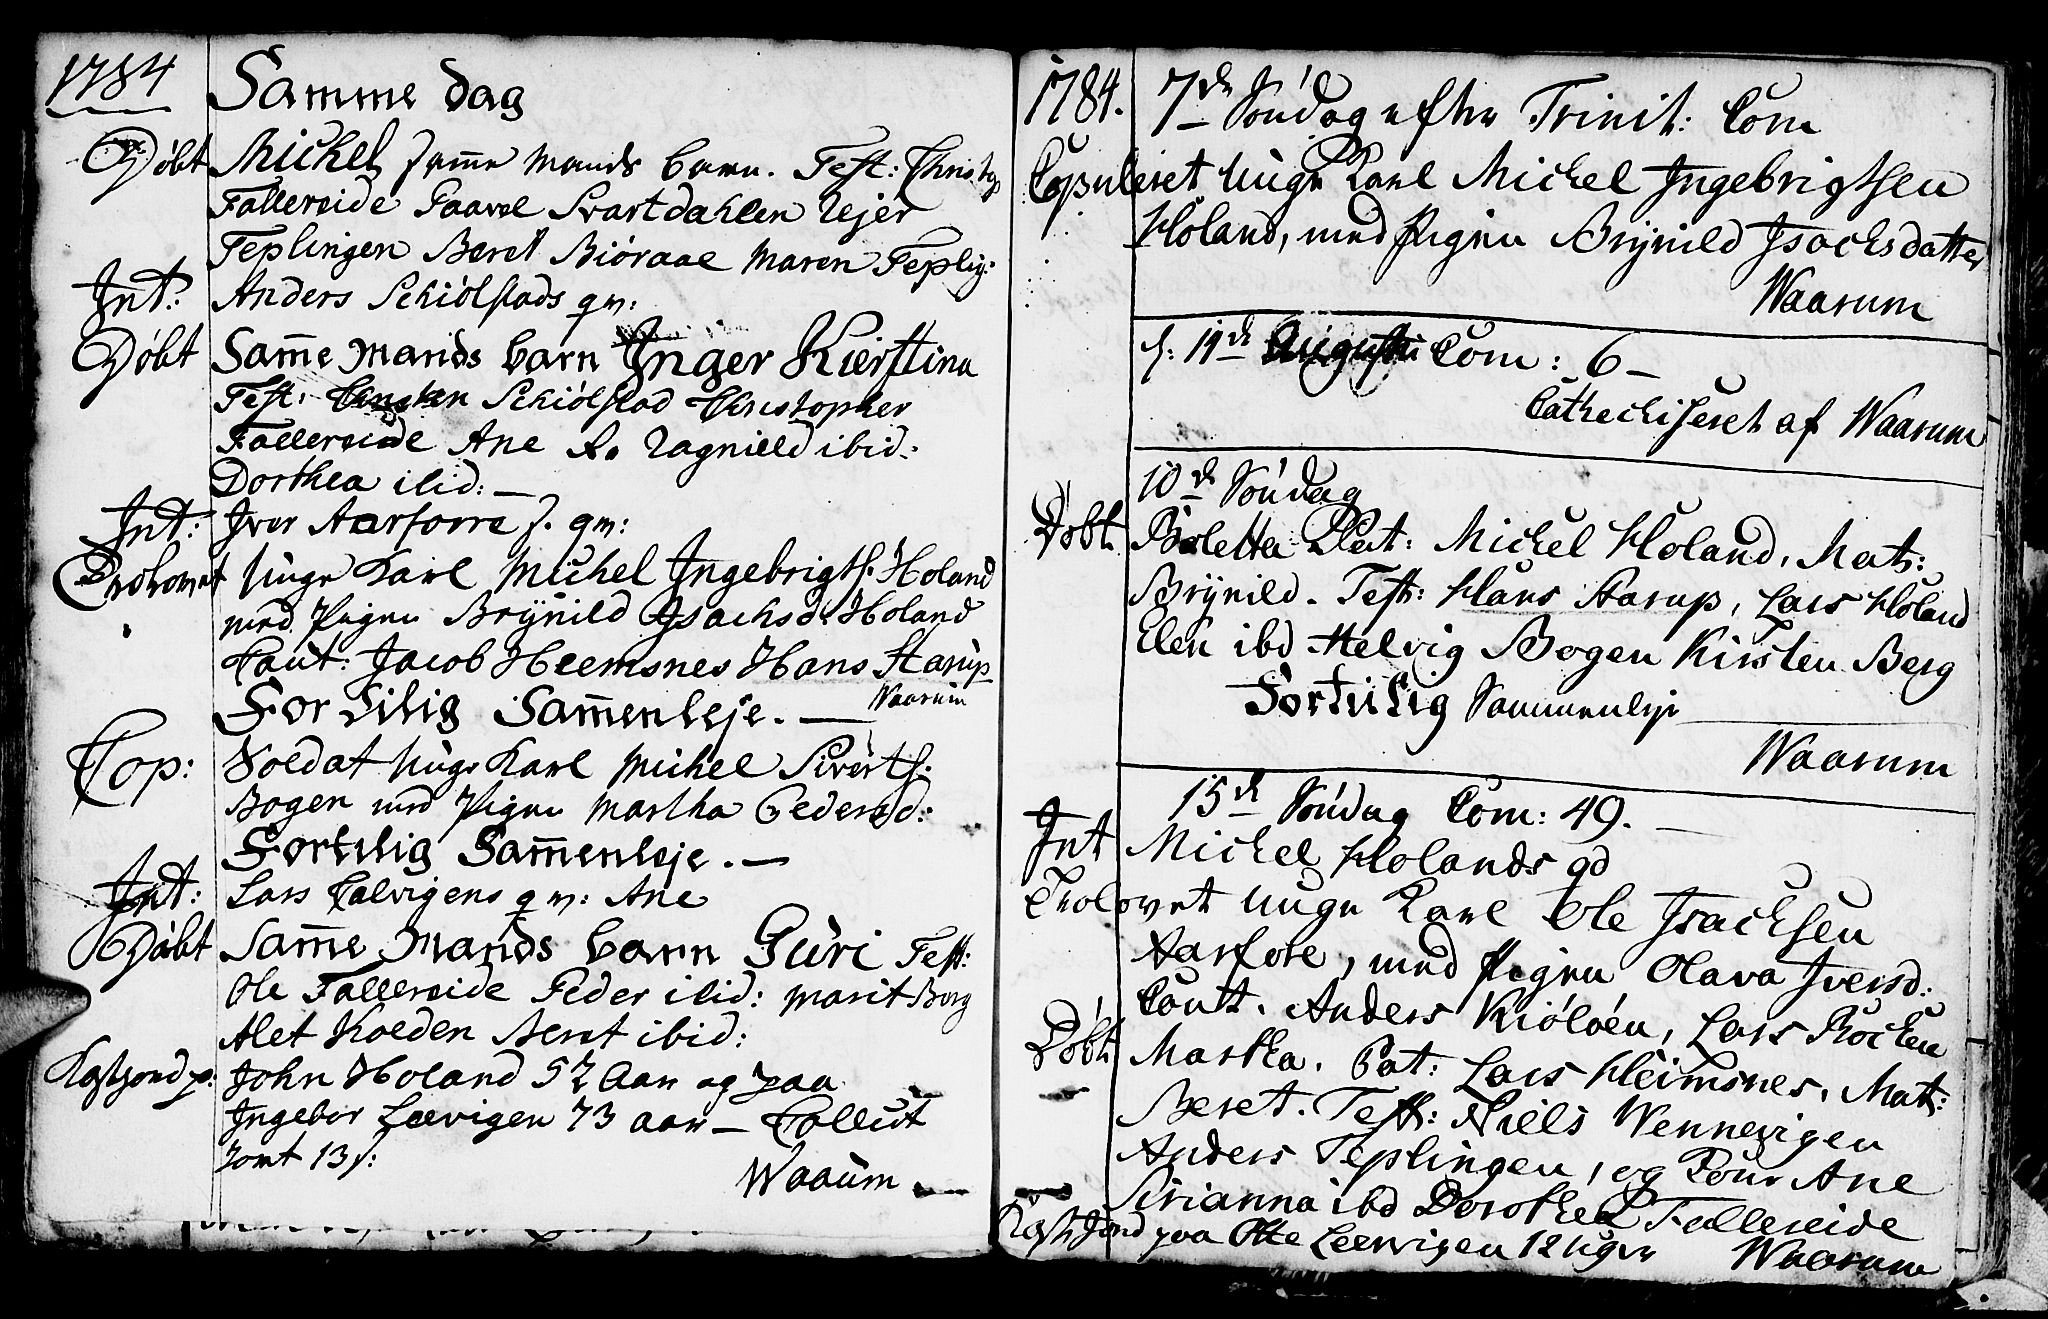 1784
Samme Dag
Döbt Michel samme Mands barn. Test: Christop
Fallereide Paavel Svartdahlen Rejer
Teplingen Beret Biöraae Maren Teplig:
Int: Anders Schiölstads qv:
Döbt Sam̅e Mands barn Inger Kierstina
Test: Schiölstad Christopher
Fallereide Ane Ragnield ibid:
Dorthea ibid: —
Int: Iver Aarforre qv:
Trolovet Unge Karl Michel Ingebrigts. Holand
med Pigen Brÿnild Isachsd. Holand
Caut: Jacob Heemsnes Hans Aarup
Waarum
For tilig Sam̅enleje. —
Cop: Soldat Unge Karl Michel Siverts.
Bogen med Pigen Martha Pedersd:
Fortilig Sam̅enleje. —
Int: Lars Calvigens qv: Ane
Döbt Sam̅e Mands barn Guri Test:
Ole Fallereide Peder ibid: Marit Berg
Alet Koeden Beret ibid:
Kastjord p: John Holand 52 Aar og paa
Ingebor Leervigen 73 aar — Collect
13 s:
Waaum
1784. 7de Söndag efter Trinit: Com
Copuleret Unge Karl Michel Ingebrigtsen
Holand, med Pigen Brÿnild Isachsdatter
Waarum
Com: 6 —
Cathechiseret af Waarum
10de Söndag
Döbt Boletta Pat: Michel Holand, Mat:
Brÿnild. Test: Hans Aarup, Lars Holand
Elen ibd Helvig Bogen Kirsten Berg
Fortilig Sammenleje
Waarum
15de Söndag Com: 49. —
Int Michel Holands qv
Trolovet Unge Karl Ole Isachsen
Aarfore, med Pigen Olava Iversd:
Caut. Anders Kiölöen, Lars
Döbt Martha. Pat: Lars Heimsnes. Mat:
Beret. Test: Niels Wennevigen
Anders Teplingen, og Ane
Sirianna ibd Dorothea Fallereide
Kast Jord paa Otte Leervigen 12 Uger
Waarum